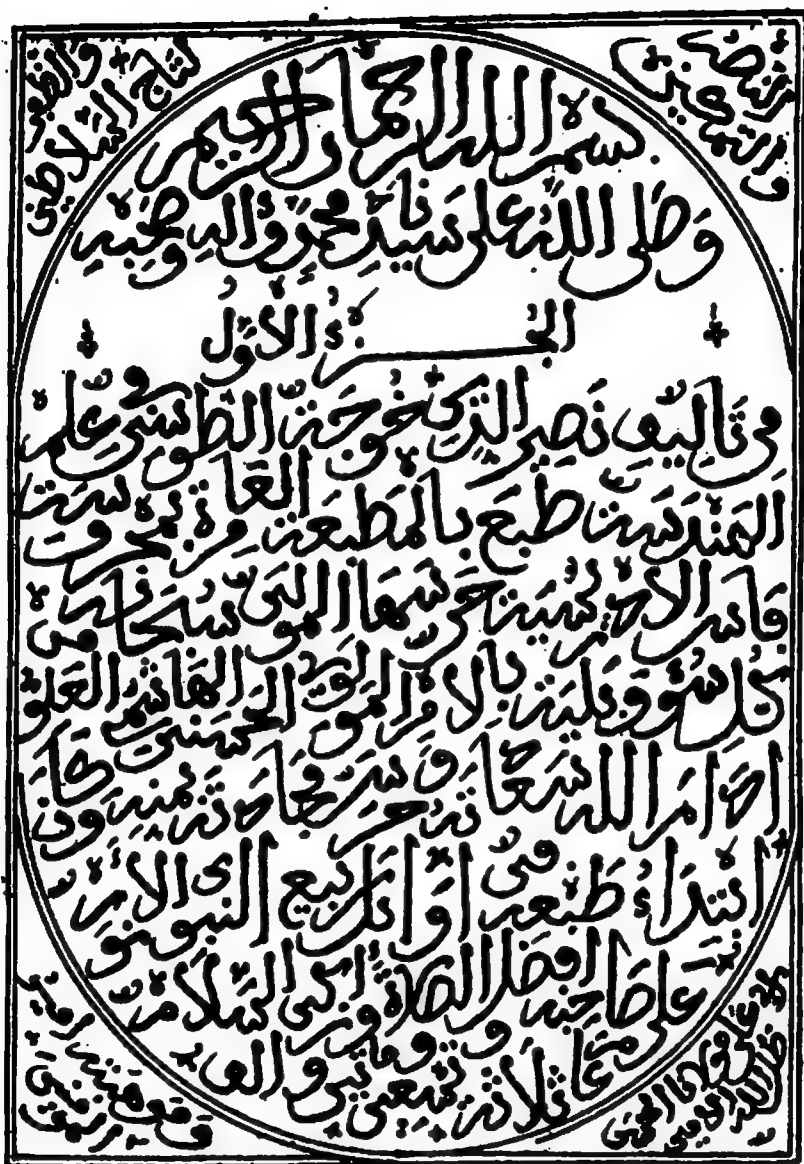 النصر والتمكين
والظفر لتاج السلاطين
بسم الله الرحمان الرحيم
وصلى الله على سيدنا محمد وءاله وصحبه
الجزء الأول
من تأليف نصير الدين خوجة الطوسي في علم
الهندسة طبع بالمطبعة العامرة بمحروسة
فاس الإدريسية حرسها المولى سبحانه من
كل سوء وبلية بالأمر المولوي الحسني الهاشمي العلوي
ادام الله سعادته وحرس مجادته بمنه وكان
ابتداء طبعه في أوائل ربيع النبوي الأنور
على صاحبه أفضل الصلاة وأزكى السلام
من عام ثلاثة وتسعين ومائتين والف